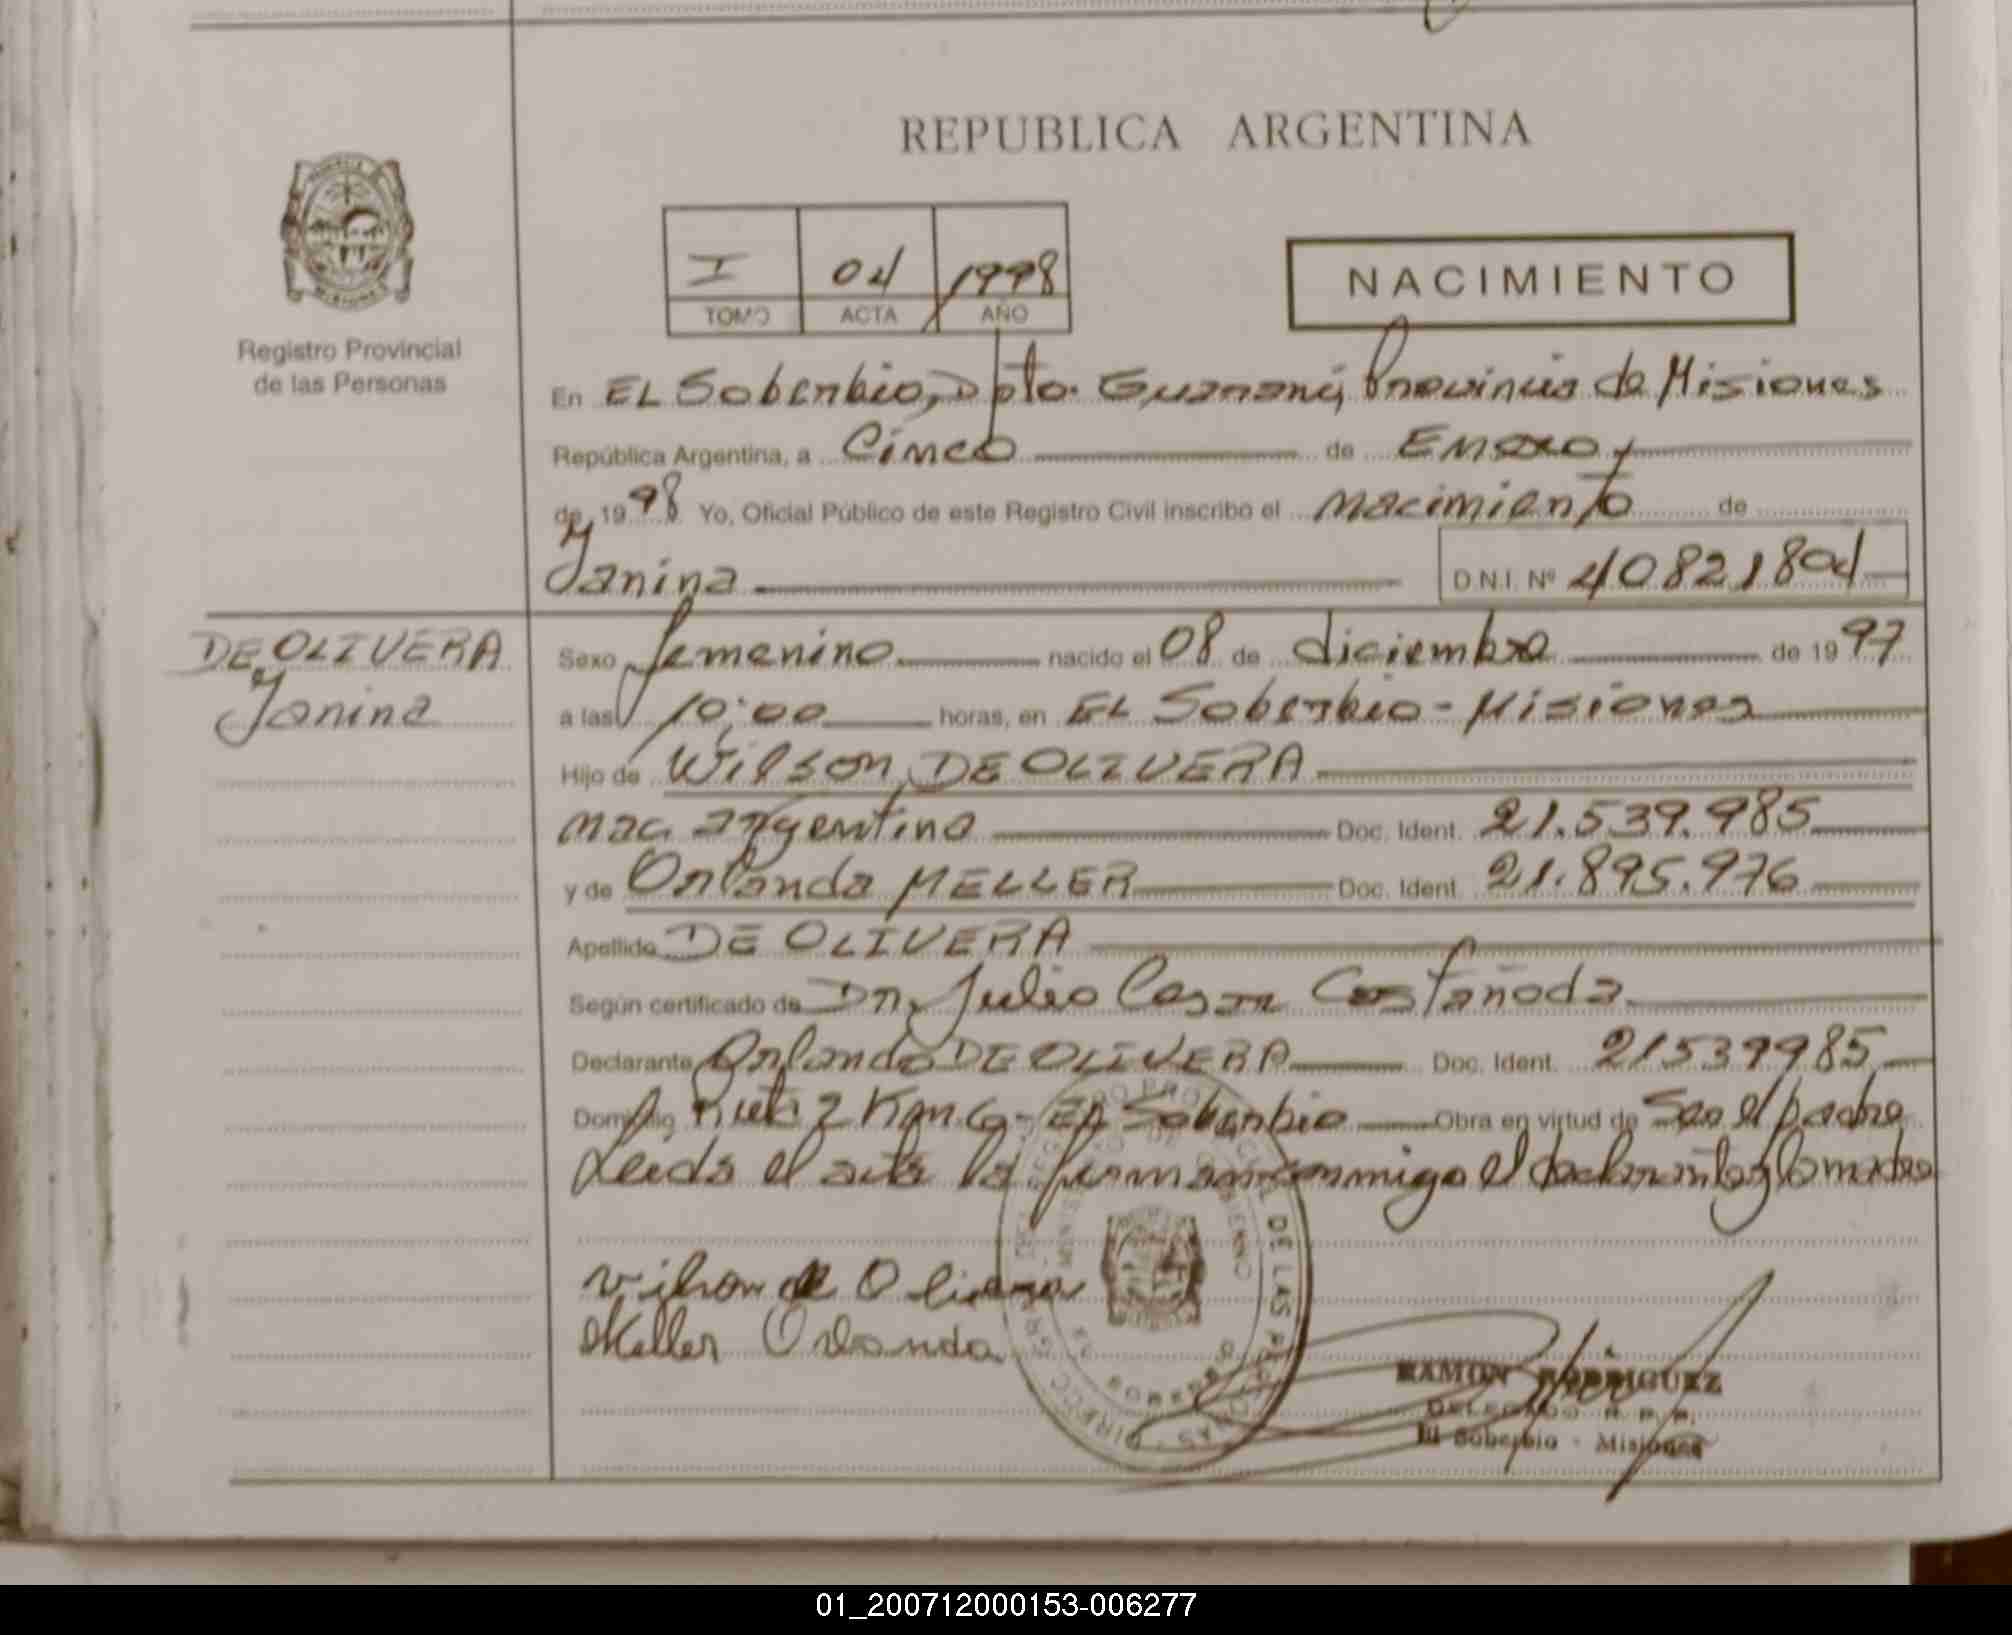 REPUBLICA ARGENTINA
I 04 1998
TOMO ACTA AÑO
NACIMIENTO
Registro Provincial
de las Personas
En EL Soberbio, Dpto. Guarani, Provincia de Misiones
República Argentina, a Cinco de Enero
de 1998 Yo, Oficial Público de este Registro Civil inscribo el nacimiento de
Janina D.N.I. Nº 40821804
DE OLIVERA
Janina
Sexo femenino nacido el 08 de diciembre de 1997
a las 10:00 horas, en EL Soberbio - Misiones
Hijo de Wilson DE OLIVERA
nac. argentina Doc. Ident. 21.539.985
y de Orlanda MELLER Doc. Ident. 21.895.976
Apellido DE OLIVERA
Según certificado de Dr. Julio Cesar Castañoda
Declarante Orlando DE OLIVERA Doc. Ident. 21539985
Domicilio Ruta 2 Km El Soberbio Obra en virtud de Seo el padre
Leida el acta la firman conmigo el declarante y la madre
Vilson de Olivera
Meller Orlanda
RAMON RODRIGUEZ
DELEGADO R. P. P.
El Soberbio - Misiones
01_200712000153-006277